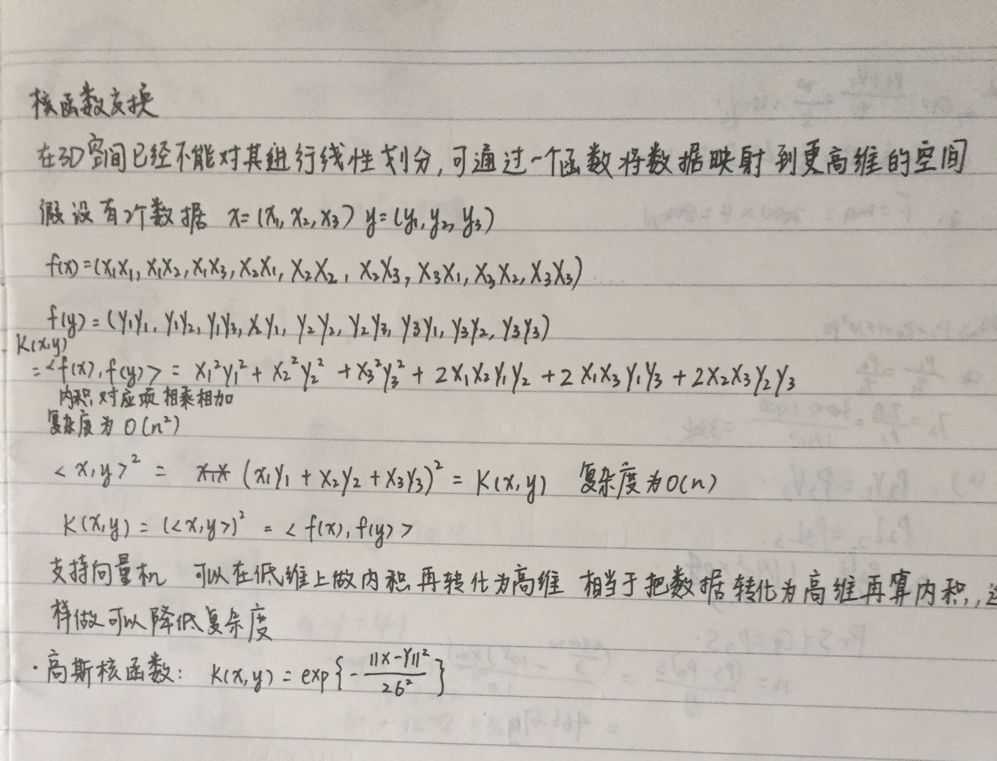 核函数变换
在3D空间已经不能对其进行线性划分,可通过一个函数将数据映射到更高维的空间
假设有2个数据 x=(x₁,x₂,x₃) y=(y₁,y₂,y₃)
f(x)=(x₁x₁,x₁x₂,x₁x₃,x₂x₁,x₂x₂,x₂x₃,x₃x₁,x₃x₂,x₃x₃)
f(y)=(y₁y₁,y₁y₂,y₁y₃,y₂y₁,y₂y₂,y₂y₃,y₃y₁,y₃y₂,y₃y₃)
K(x,y)
=<f(x),f(y)> = x₁²y₁²+x₂²y₂²+x₃²y₃²+2x₁x₂y₁y₂+2x₁x₃y₁y₃+2x₂x₃y₂y₃
内积,对应项相乘相加
复杂度为O(n²)
<x,y>² = (x₁y₁+x₂y₂+x₃y₃)² = K(x,y) 复杂度为O(n)
K(x,y)=(<x,y>)² = <f(x),f(y)>
支持向量机 可以在低维上做内积再转化为高维 相当于把数据转化为高维再算内积,,这
样做可以降低复杂度
·高斯核函数: K(x,y)=exp{-||x-y||²/2σ²}